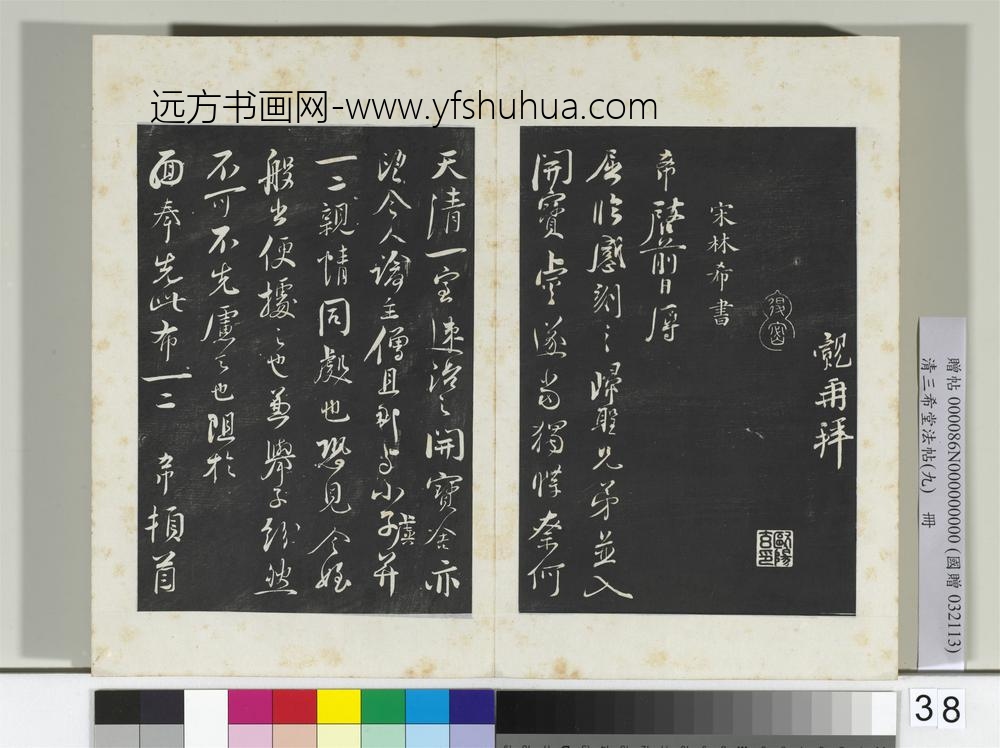 远方书画网-www.yfshuhua.com
觀再拜
宋林希書
希啓前日辱
居臨感刻之歸聖兄弟並入
開寶處遂當獨懷奈何
天清一室速治之開寶舍亦
語令人諭主僧且新與小子虞并
一二親情同處也恐見今年
般出便據之也兼舉子紛然
不可不先慮之也阻於
面奉先此布一二 希頓首
贈帖 000086N000000000 (國贈 032113)
清三希堂法帖(九) 冊
38